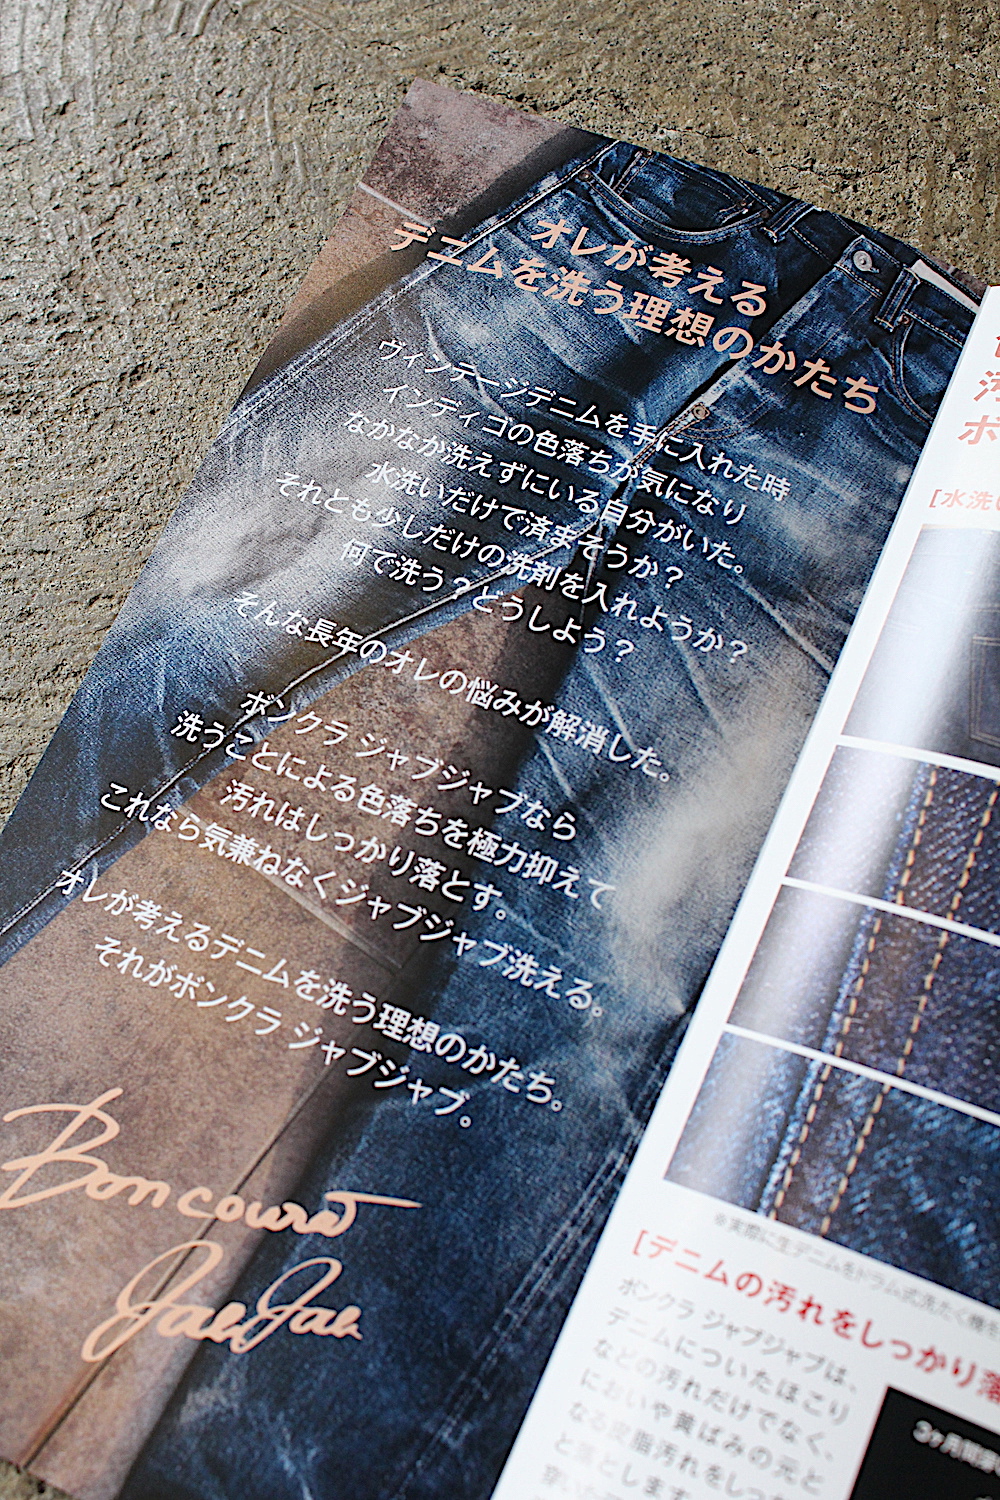 オレが考える
デニムを洗う理想のかたち
ヴィンテージデニムを手に入れた時
インディゴの色落ちが気になり
なかなか洗えずにいる自分がいた。
水洗いだけで済まそうか？
それとも少しだけの洗剤を入れようか？
何で洗う？どうしよう？
そんな長年のオレの悩みが解消した。
ボンクラ ジャブジャブなら
洗うことによる色落ちを極力抑えて
汚れはしっかり落とす。
これなら気兼ねなくジャブジャブ洗える。
オレが考えるデニムを洗う理想のかたち。
それがボンクラ ジャブジャブ。
Boncoura
JabJab
汚
ボ
[水洗い
※実際に生デニムをドラム式洗たく機を
[デニムの汚れをしっかり落
ボンクラ ジャブジャブは、
デニムについたほこり
などの汚れだけでなく、
においや黄ばみの元と
なる皮脂汚れをしっか
と落とします。
3ヶ月間